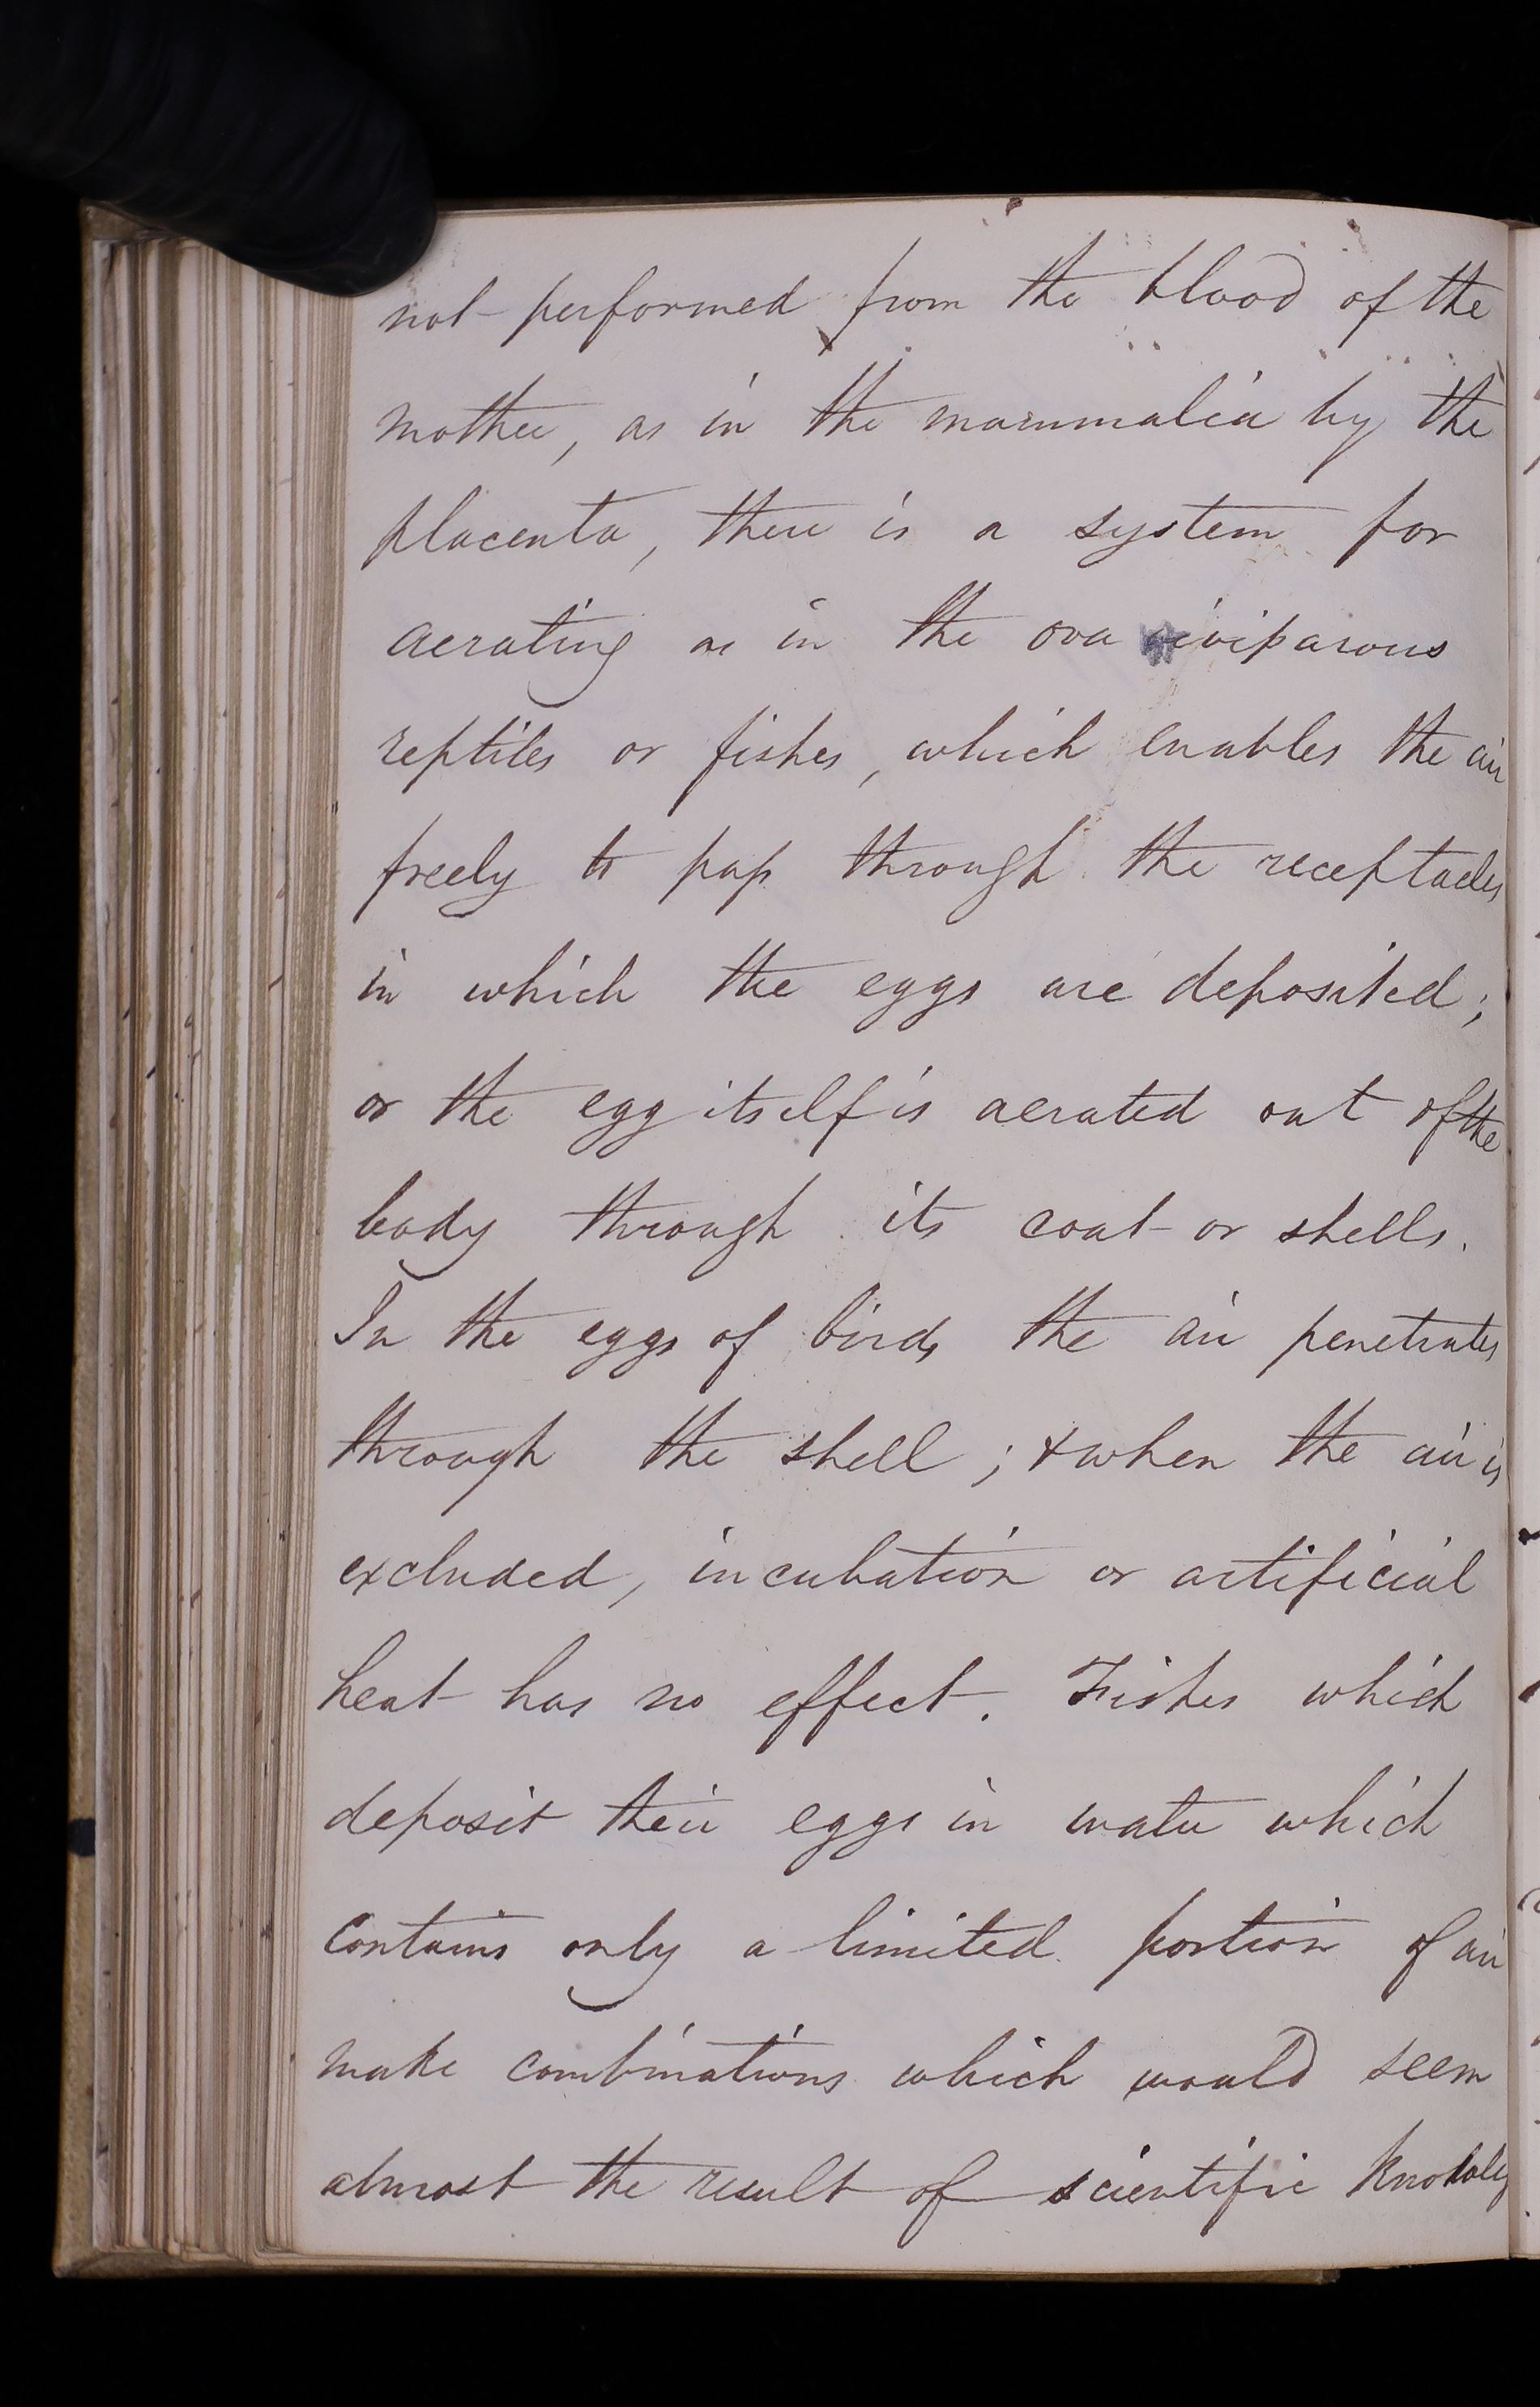 not performed from the blood of the
mother, as in the mammalia by the
placenta, there is a system for
aerating as in the ova viviparous
reptiles or fishes, which enables the air
freely to pass through the receptacles
in which the eggs are deposited;
or the egg itself is aerated out of the
body through its coat or shells.
In the eggs of birds the air penetrates
through the shell; & when the air is
excluded, incubation or artificial
heat has no effect. Fishes which
deposit their eggs in water which
contains only a limited portion of air
make combinations which would seem
almost the result of scientific